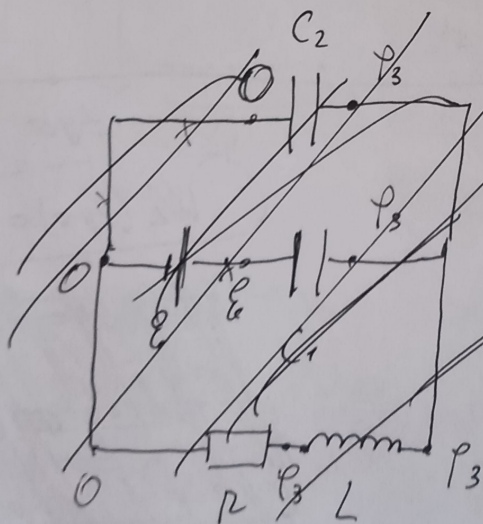 C₂
0 φ₃
φ₃
0 ℰ ℰ
C₁
0 R φ₃ L φ₃